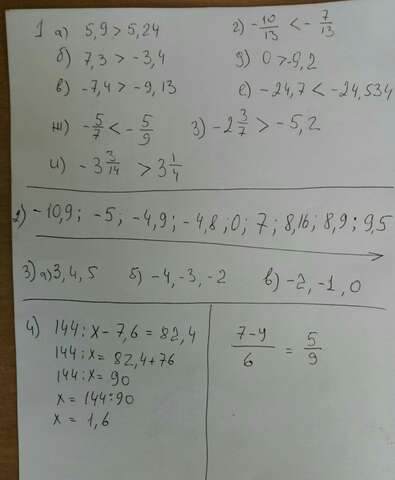 1 а) 5,9 > 5,24
г) -10/13 < -7/13
б) 7,3 > -3,4
д) 0 > -9,2
в) -7,4 > -9,13
е) -24,7 < -24,534
ж) -5/7 < -5/9
з) -2 3/7 > -5,2
и) -3 3/14 > 3 1/4
2) -10,9; -5; -4,9; -4,8; 0; 7; 8,16; 8,9; 9,5
3) а) 3, 4, 5 б) -4, -3, -2 в) -2, -1, 0
4) 144 : x - 7,6 = 82,4
144 : x = 82,4 + 76
144 : x = 90
x = 144 : 90
x = 1,6
7-y/6 = 5/9